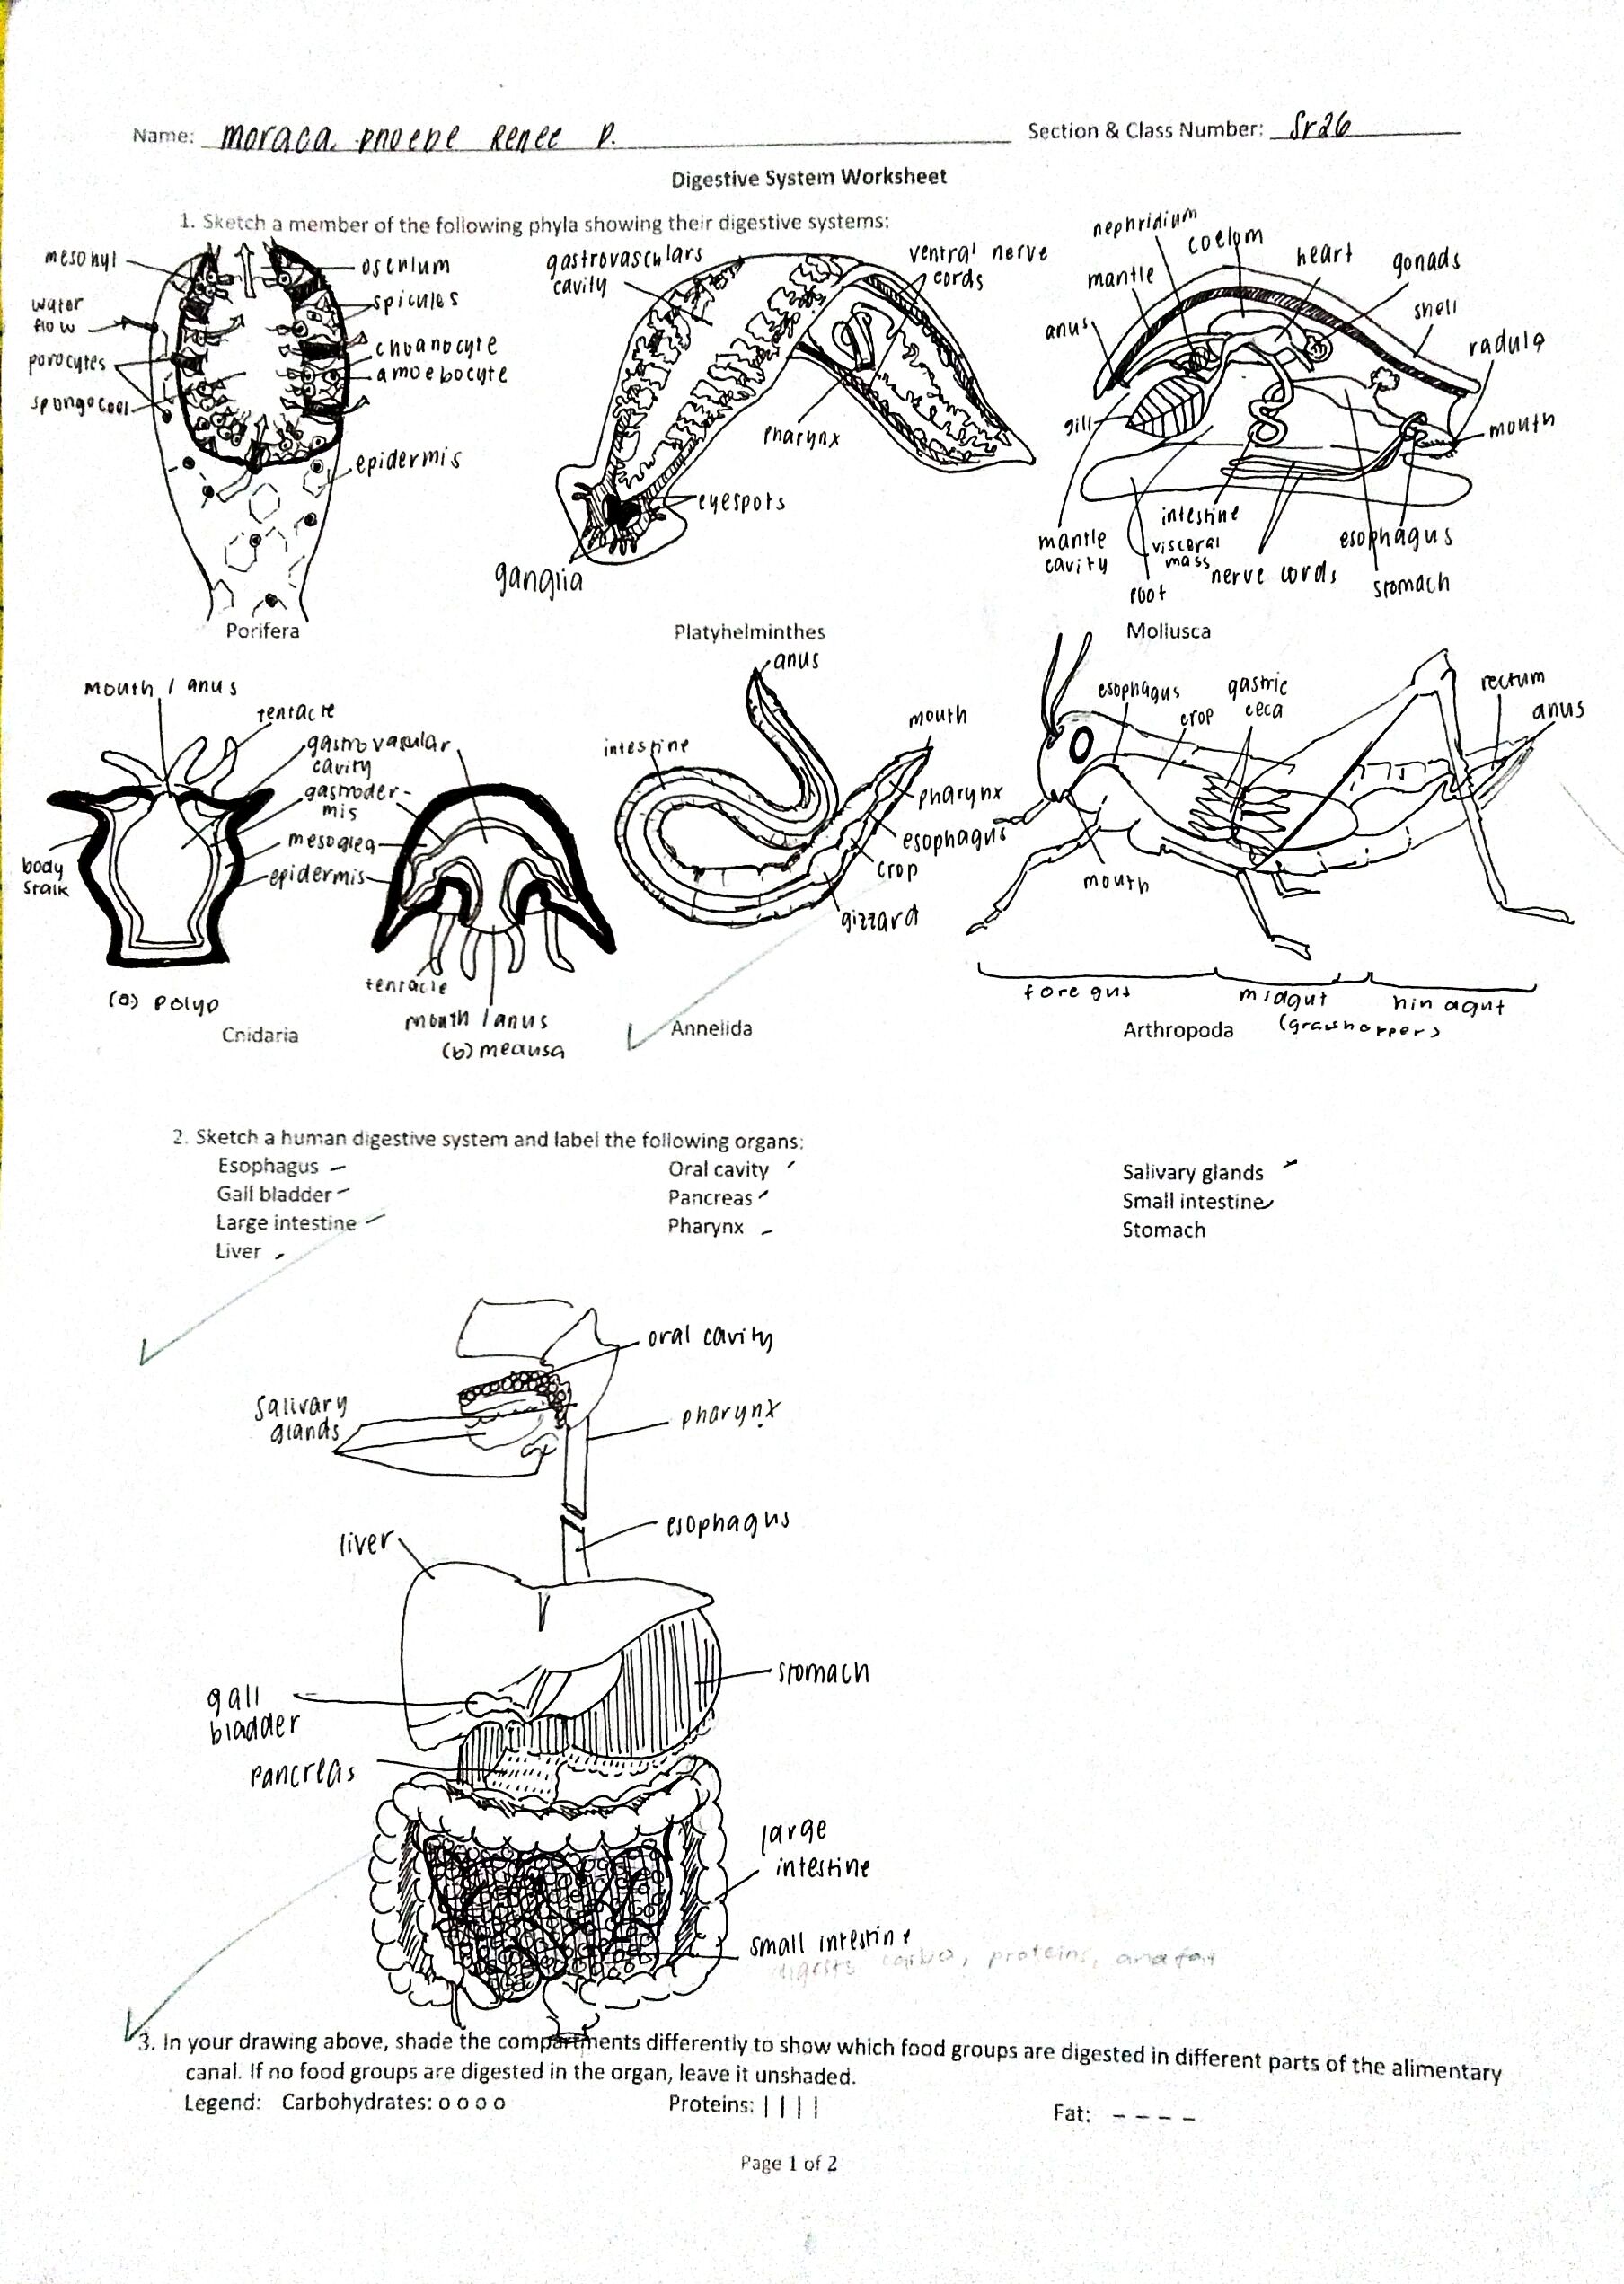 Name: Moraca, Phoebe Renee P. Section & Class Number: Sr26
Digestive System Worksheet
1. Sketch a member of the following phyla showing their digestive systems:
mesohyl
osculum
water
flow
spicules
porocytes
choanocyte
amoebocyte
spongocoel
epidermis
Porifera
gastrovasculars
cavity
ventral nerve
cords
pharynx
eyespots
ganglia
Platyhelminthes
nephridium
coelom
heart
gonads
mantle
shell
anus
radula
gill
mouth
mantle
cavity
intestine
visceral
mass
foot
nerve cords
esophagus
stomach
Mollusca
mouth / anus
tentacle
gastrovasular
cavity
gastroder-
mis
mesoglea
epidermis
body
stalk
tentacle
mouth / anus
(a) polyp
(b) medusa
Cnidaria
anus
mouth
intestine
pharynx
esophagus
crop
gizzard
Annelida
esophagus
crop
gastric
ceca
rectum
anus
mouth
fore gut
midgut
hindgut
(grasshopper)
Arthropoda
2. Sketch a human digestive system and label the following organs:
Esophagus Oral cavity Salivary glands
Gall bladder Pancreas Small intestine
Large intestine Pharynx Stomach
Liver
oral cavity
salivary
glands
pharynx
esophagus
liver
stomach
gall
bladder
pancreas
large
intestine
small intestine
digests carbo, proteins, and fat
3. In your drawing above, shade the compartments differently to show which food groups are digested in different parts of the alimentary
canal. If no food groups are digested in the organ, leave it unshaded.
Legend: Carbohydrates: o o o o Proteins: | | | | Fat: - - - -
Page 1 of 2